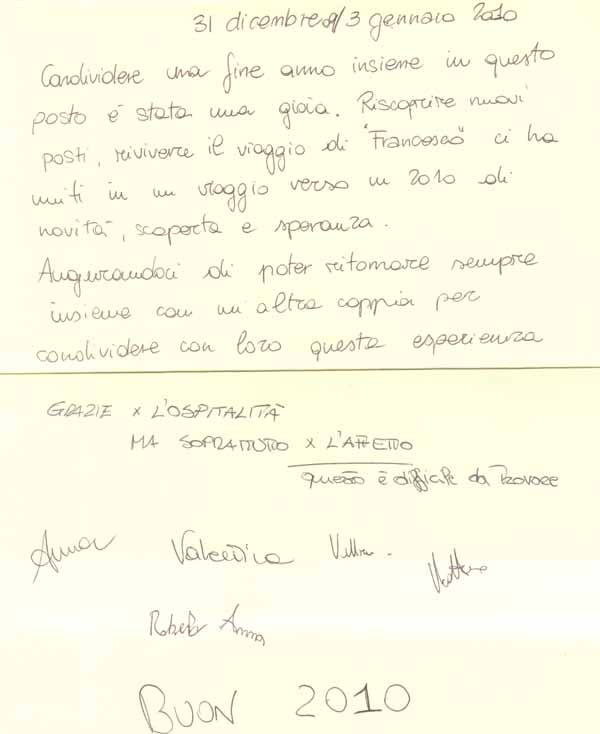 31 dicembre 09/3 gennaio 2010
Condividere una fine anno insieme in questo
posto è stata una gioia. Riscoprire nuovi
posti, rivivere il viaggio di "Francesco" ci ha
uniti in un viaggio verso un 2010 di
novità, scoperta e speranza.
Augurandoci di poter ritornare sempre
insieme con un'altra coppia per
condividere con loro questa esperienza
GRAZIE x L'OSPITALITÀ
MA SOPRATTUTTO x L'AFFETTO
questo è difficile da trovare
Anna Valentina
Roberto Anna
BUON 2010